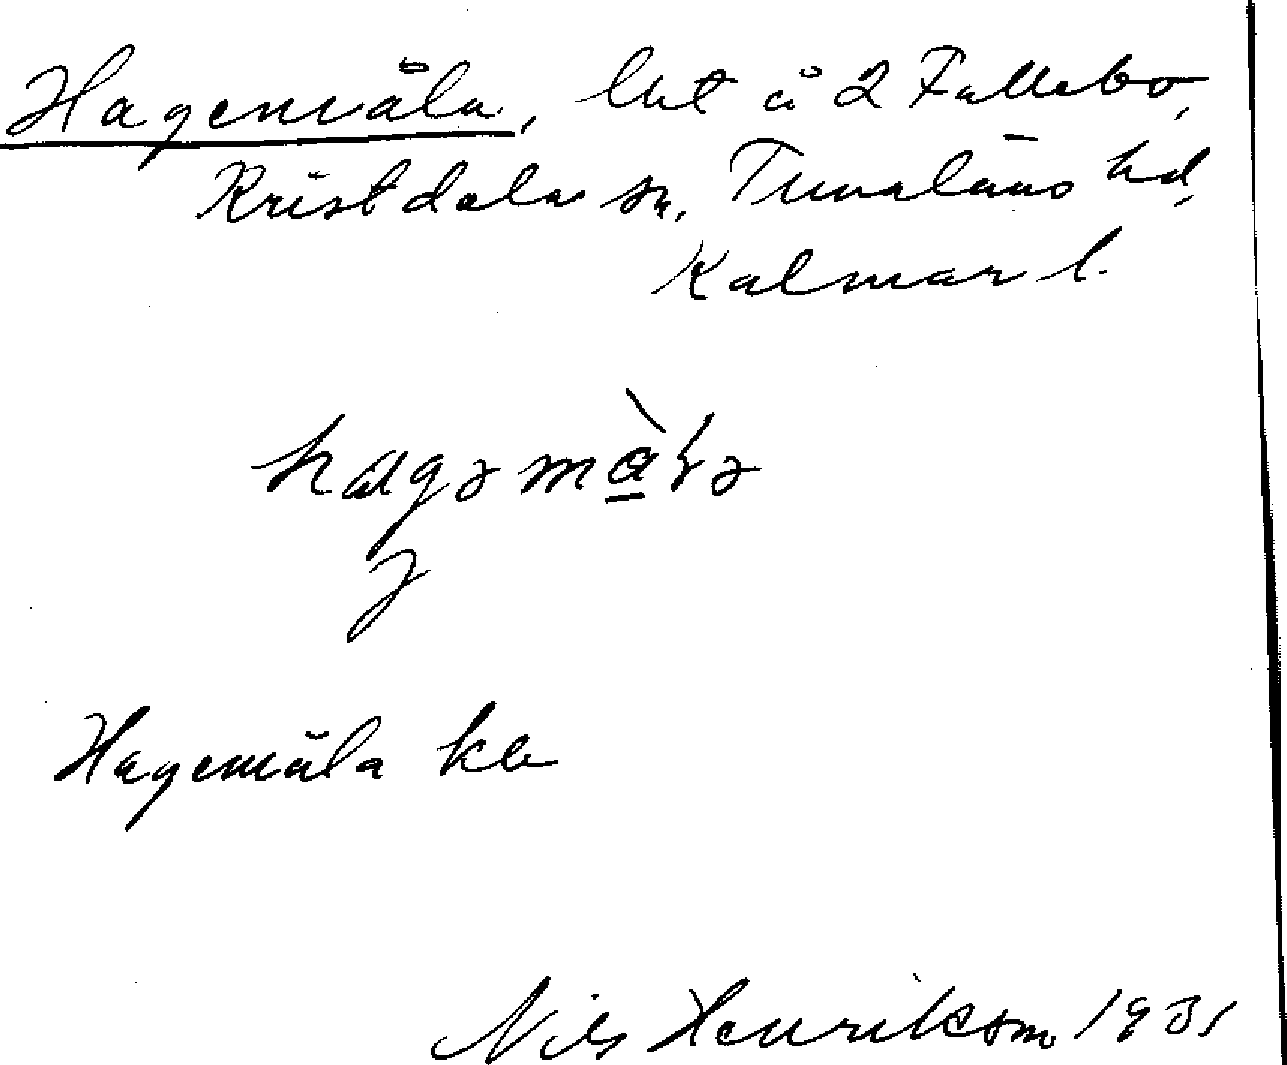 Hagemåla, lht å 2 Fallebo,
Kristdala sn, Tunaläns hd,
Kalmar l.
hagəmåla
Hagemåla kb
Nils Henrikson 1931